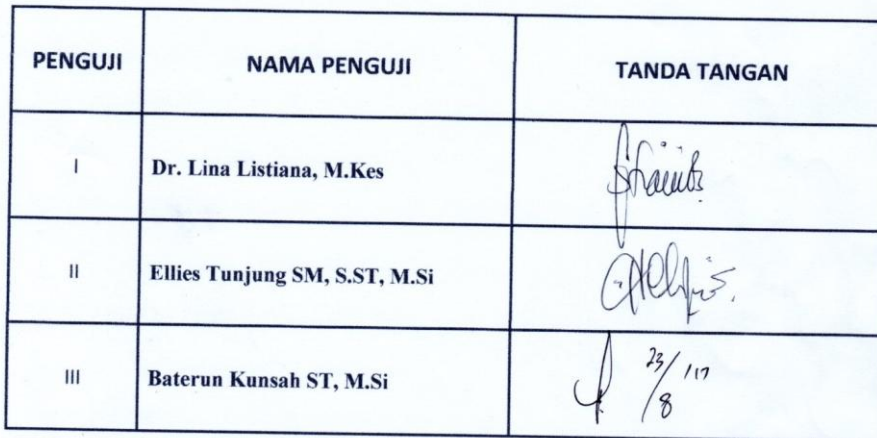 PENGUJI NAMA PENGUJI TANDA TANGAN
I Dr. Lina Listiana, M.Kes
II Ellies Tunjung SM, S.ST, M.Si
III Baterun Kunsah ST, M.Si 23/8 /17